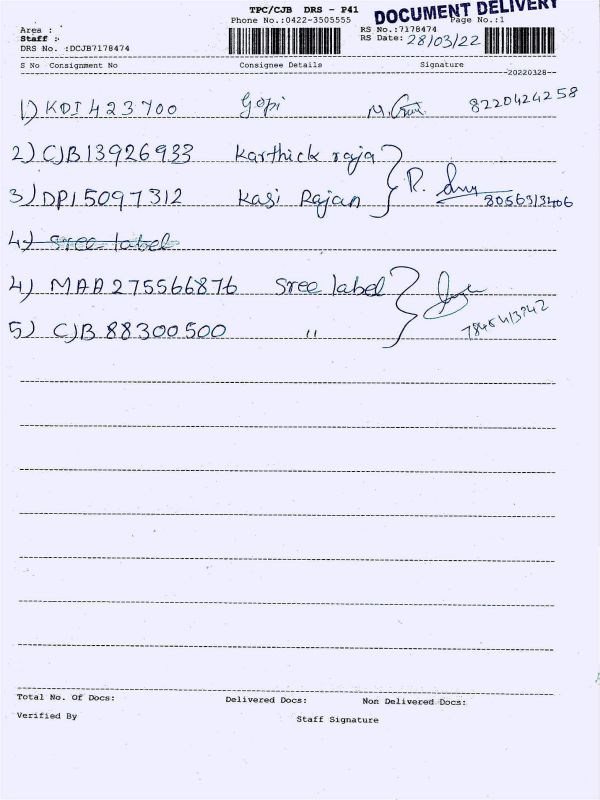 TPC/CJB DRS - P41
DOCUMENT DELIVERY
Phone No.:0422-3505555
Page No.:1
Area :
RS No.:7178474
Staff :-
RS Date: 28/03/22
DRS No. :DCJB7178474
S No Consignment No Consignee Details Signature
--20220328--
1) KDI 423700 Gopi 8220424258
2) CJB13926933 Karthick raja
3) DPI5097312 Kasi Rajan R. 8056313406
4) Sree label
4) MAA 275566876 Sree label
5) CJB 88300500 " 7845413242
Total No. Of Docs: Delivered Docs: Non Delivered Docs:
Verified By Staff Signature